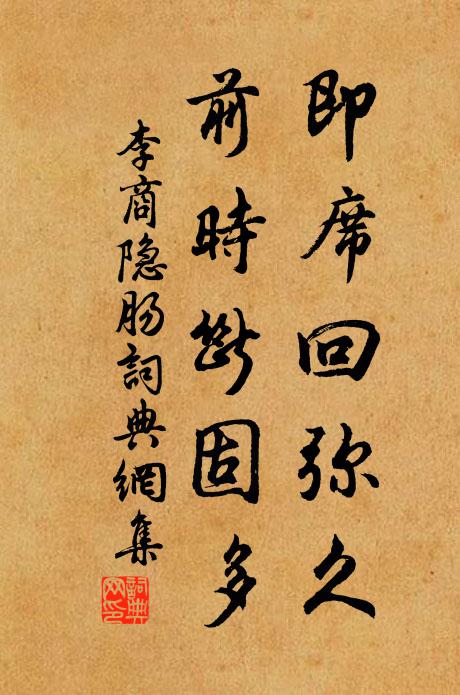 即席回弥久
前時斷固多
李商隐肠詞典網集
詞典
网印